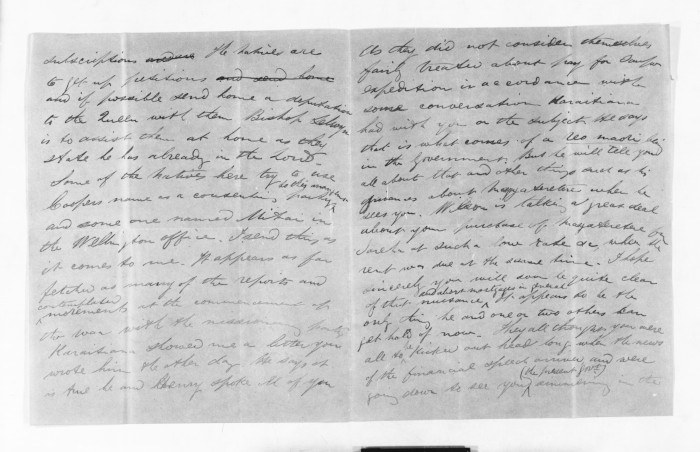 subscriptions and use The natives are
to get up petitions and send home
and if possible send home a deputation
to the Queen with them Bishop Selwyn
is to assist them at home as they
state he has already in the Lords
Some of the natives here try to use
Coopers name as a consenting party
and some one named Mitai in
the Wellington office. I send this as
it comes to me. It appears as far
fetched as many of the reports and
contemplated
movements at the commencement of
the war with the missionary
Karaitiana showed me a letter you
wrote him the other day. He says it
is true he and Henry spoke ill of you
As they did not consider themselves
fairly treated about pay for
expedition in accordance with
some conversation Karaitiana
had with you on the subject. He says
that is what comes of a
in the Government. But he will tell you
all about that and other things such as his
grievances about when he
sees you. Wilson is talking a great deal
about your purchase of from
Sarah at such a low rate &c, when the
rent was due at the same time. I hope
sincerely you will soon be quite clear
of that nuisance and about mortgages in general. It appears to be the
only thing he and one or two others can
get hold of now. They all thought you were
all to be kicked out head long when the news
of the financial speech arrived and were
going down to see you (the present Govt) in the